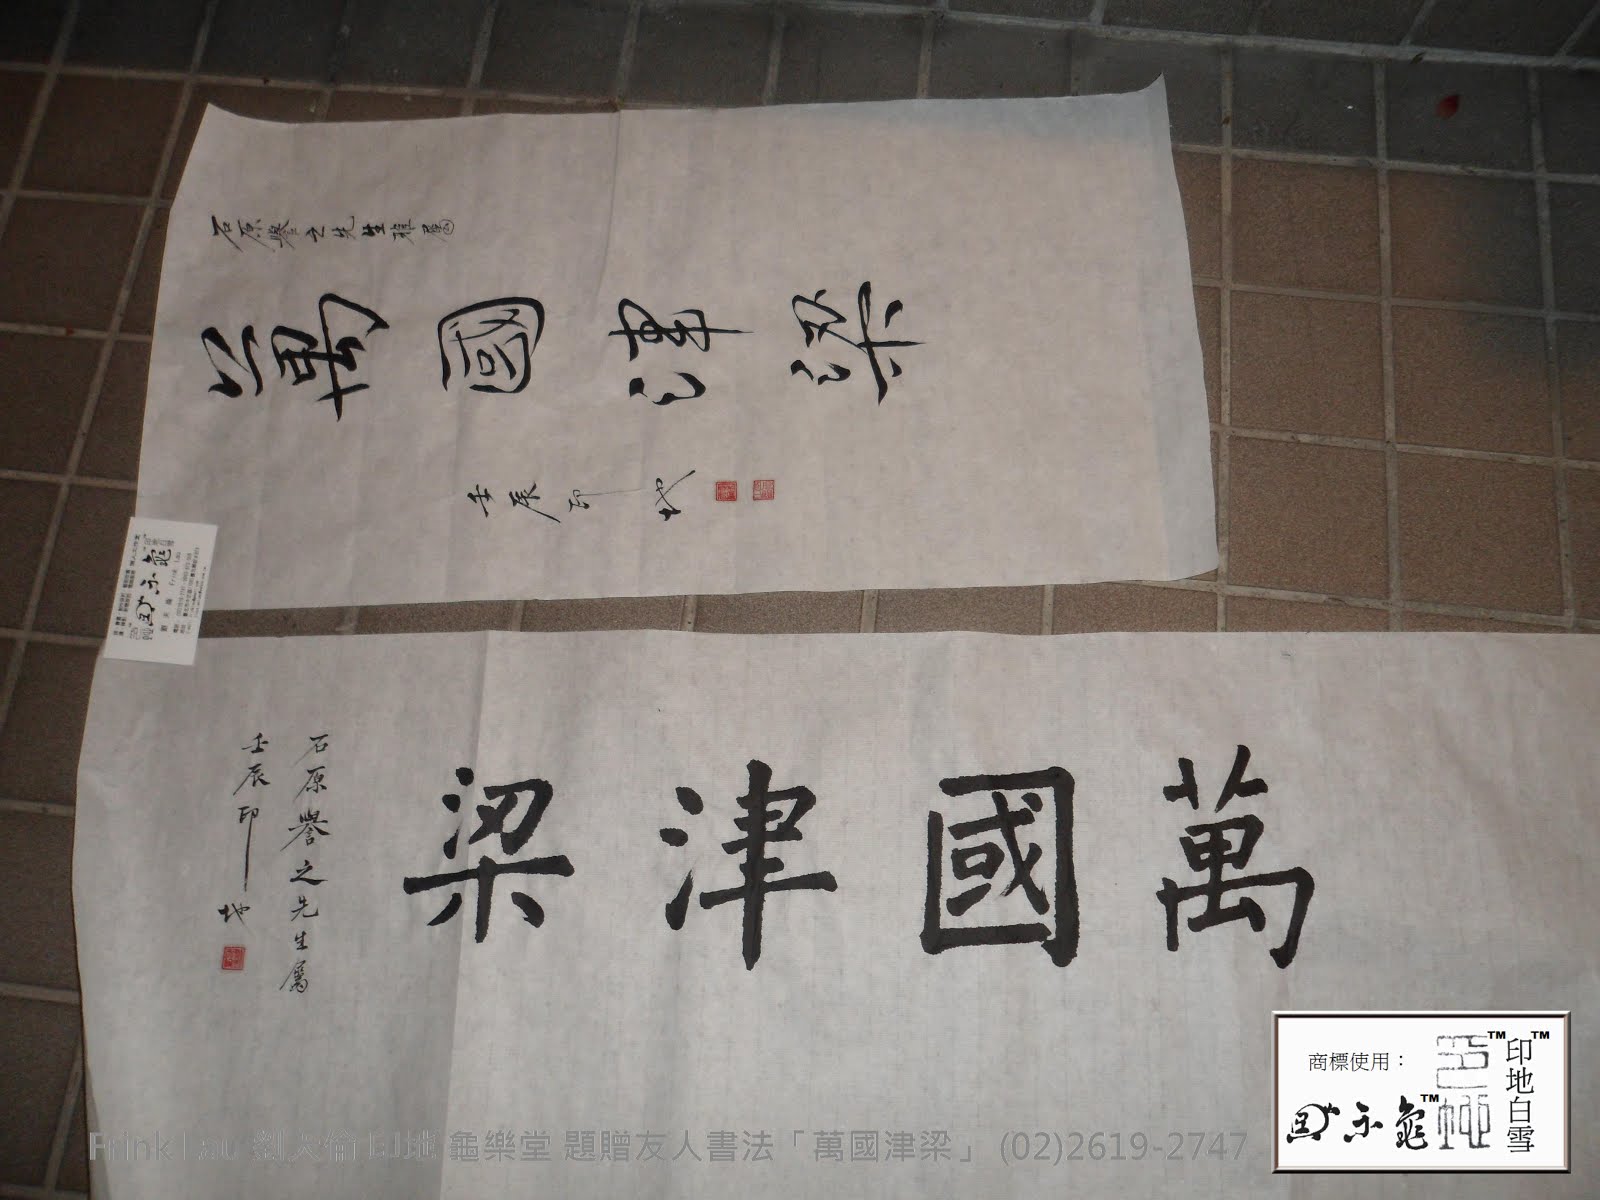 石原譽之先生雅屬
萬國津梁
壬辰印地
萬國津梁
石原譽之先生屬
壬辰印地
商標使用：
印地白雪
TM
TM
TM
Frink Lau 劉大倫 印地 龜樂堂 題贈友人書法「萬國津梁」 (02)2619-2747